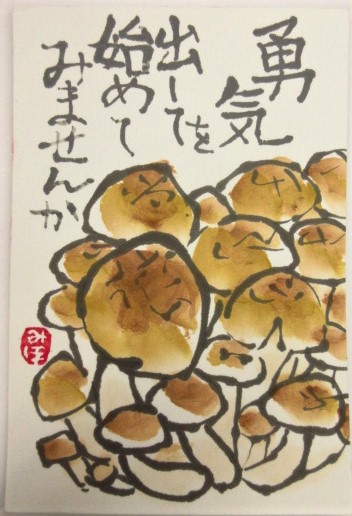 勇気を
出して
始めて
みませんか